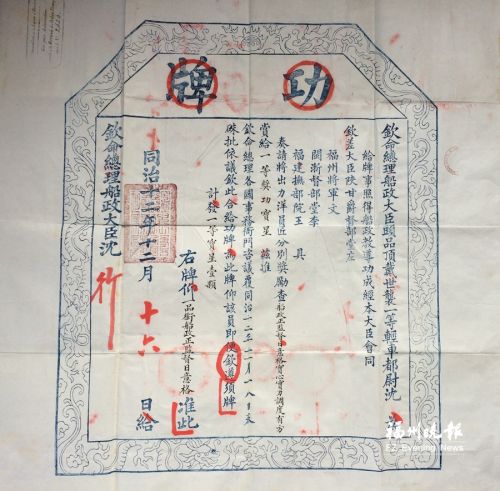 功牌
欽命總理船政大臣頭品頂戴世襲一等輕車都尉沈 為
給牌事照得船政教導功成經本大臣會同
欽差大臣陝甘爵督部堂左
福州將軍文
閩浙督部堂李
福建撫部院王 具
奏請將出力洋員匠分別獎勵查船政正監督日意格實心實力調度有方
賞給一等獎功寶星茲准
欽命總理各國事務衙門咨議覆同治十二年十一月十八日奉
硃批依議欽此合給功牌為此牌仰該員即便欽遵須牌
計發一等寶星壹顆
右牌仰一品銜船政正監督日意格 准此
同治十二年十二月 十六 日給
欽命總理船政大臣沈 行
福州晚報
FZ Evening News